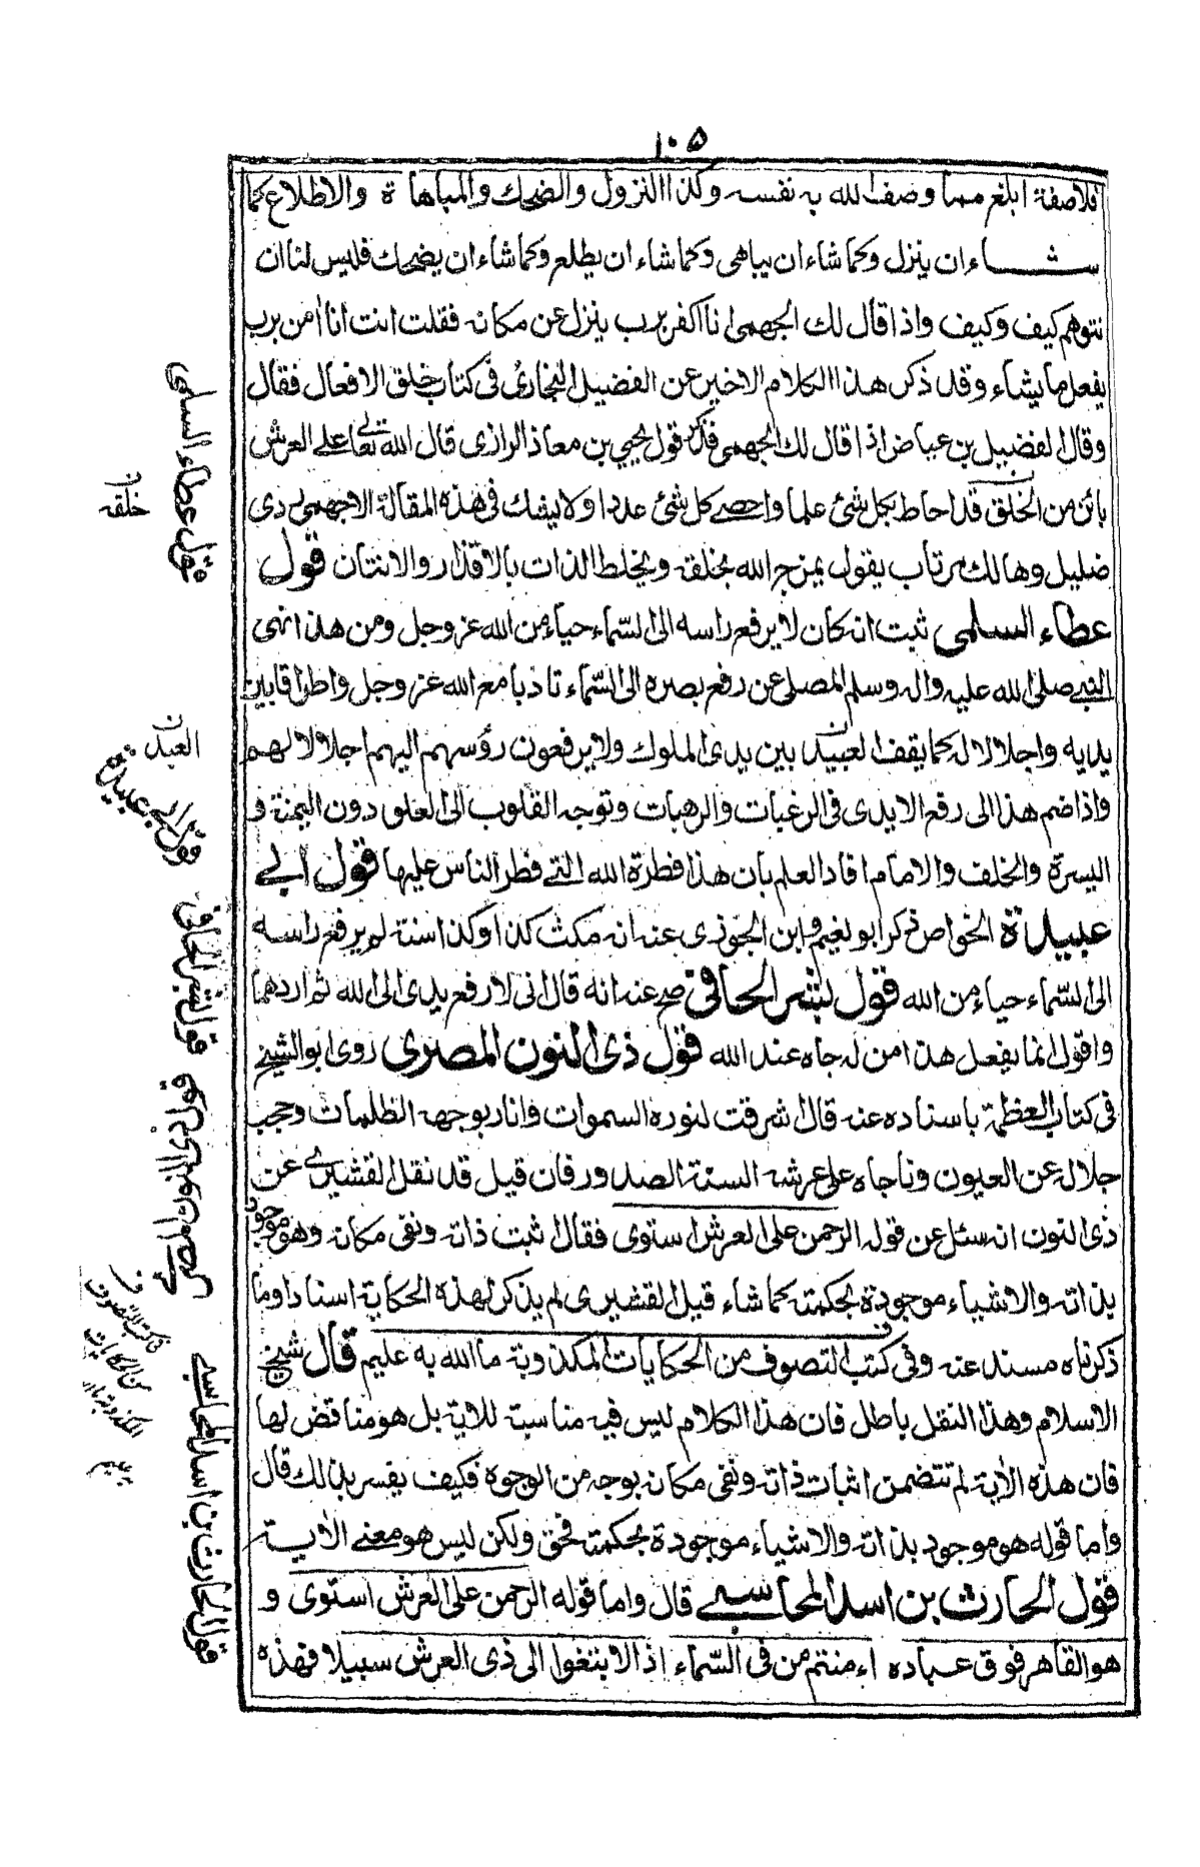 ١٠٥
فلاصفة ابلغ مما وصف الله به نفسه وكذا النزول والضحك والمباهاة والاطلاع كما
شاء ان ينزل وكما شاء ان يباهى وكما شاء ان يطلع وكما شاء ان يضحك فليس لنا ان
نتوهم كيف وكيف واذا قال لك الجهمى انا اكفر برب ينزل عن مكانه فقلت انت انا امن برب
يفعل ما يشاء وقد ذكر هذا الكلام الاخير عن الفضيل البخارى فى كتاب خلق الافعال فقال
وقال الفضيل بن عياض اذا قال لك الجهمى فذكره قول يحيى بن معاذ الرازى قال الله تعالى على العرش
بائن من الخلق قد احاط بكل شئ علما واحصے كل شئ عددا ولا يشك فى هذه المقالة الا جهمى ردى
ضليل وهالك مرتاب يقول يمزج الله بخلقه ويخلط الذات بالاقذار والانتان قول
عطاء السلمى ثبت انه كان لا يرفع راسه الى السماء حياء من الله عز وجل ومن هذا نهى
النبے صلى الله عليه واله وسلم المصلى عن رفع بصره الى السماء تادبا مع الله عز وجل واطراقا بين
يديه واجلالا له كما يقف العبيد بين يدى الملوك ولا يرفعون رؤسهم اليهم اجلالا لهم
واذا ضم هذا الى رفع الايدى فى الرغبات والرهبات وتوجه القلوب الى العلو دون اليمنة و
اليسرة والخلف والامام افاد العلم بان هذا فطرة الله التے فطر الناس عليها قول ابے
عبيدة الخواص ذكر ابو نعيم وابن الجوزى عنه انه مكث كذا وكذا سنة لم يرفع راسه
الى السماء حياء من الله قول بشر الحافى صح عنه انه قال انى لارفع يدى الى الله ثم اردهما
واقول انما يفعل هذا من له جاه عند الله قول ذى النون المصرى روى ابو الشيخ
فى كتاب العظمة باسناده عنه قال اشرقت لنوره السموات وانار بوجهه الظلمات وحجب
جلاله عن العيون وناجاه على عرشه السنة الصدور فان قيل قد نقل القشيرے عن
ذى النون انه سئل عن قوله الرحمن على العرش استوى فقال اثبت ذاته ونفى مكانه وهو موجود
بذاته والاشياء موجودة بحكمته كما شاء قيل القشيرى لم يذكر لهذه الحكاية اسنادا وما
ذكرناه مسند عنه وفى كتب التصوف من الحكايات المكذوبة ما الله به عليم قال شيخ
الاسلام وهذا النقل باطل فان هذا الكلام ليس فيه مناسبة للاية بل هو مناقض لها
فان هذه الاية لم تتضمن اثبات ذاته ونفى مكانه بوجه من الوجوه فكيف يفسر بذالك قال
واما قوله هو موجود بذاته والاشياء موجودة بحكمته فحق ولكن ليس هو معنے الاية
قول الحارث بن اسد المحاسبے قال واما قوله الرحمن على العرش استوى و
هو القاهر فوق عباده اءمنتم من فى السماء اذا لابتغوا الى ذى العرش سبيلا فهذه
قول عطاء السلمى
خلقه
العبد
قول ابے عبيدة
قول بشر الحافى
فى كتب التصوف
من الحكايات
به عليم
قول الحارث بن اسد المحاسبے